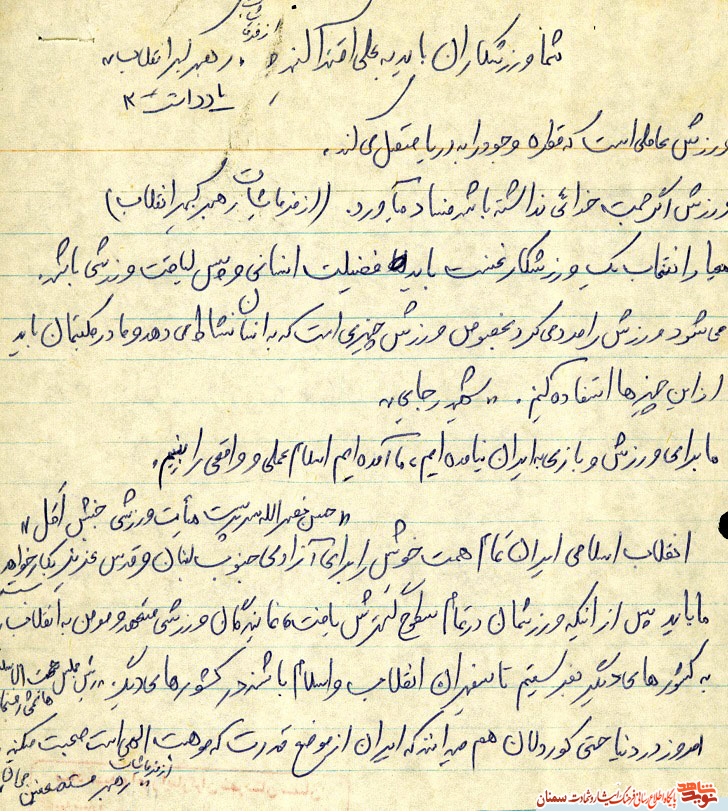 از فرمایشات
شما ورزشکاران باید به علی اقتدا کنید. رهبر کبیر انقلاب"
یادداشت ۳
ورزش عاملی است که قطره وجود را به دریا متصل می کند.
ورزش اگر جهت خدائی نداشته باشد فساد می آورد. (از فرمایشات رهبر کبیر انقلاب)
معیار انتخاب یک ورزشکار نخست باید فضیلت انسانی و پس لیاقت ورزشی باشد.
می شود ورزش را مردمی کرد بخصوص ورزش چیزی است که به انسان نشاط می دهد و ما در مکتبمان باید
از این چیزها استفاده کنیم. "شهید رجایی"
ما برای ورزش و بازی به ایران نیامده ایم، ما آمده ایم اسلام عملی و واقعی را ببینیم.
"حسن نصرالله سرپرست هیأت ورزشی جنبش أمل"
انقلاب اسلامی ایران تمام همت خویش را برای آزادی جنوب لبنان و قدس عزیز بکار خواهد
ما باید پس از آنکه ورزشمان در تمام سطوح گسترش یافت، نمایندگان ورزشی متعهد و مومن به انقلاب
به کشورهای دیگر بفرستیم تا سفیران انقلاب و اسلام باشند در کشورهای دیگر. رئیس مجلس حجت الاسلام
هاشمی رفسنجانی
امروز در دنیا حتی کوردلان هم میدانند که ایران از موضع قدرت که موهبت الهی است صحبت میکند
از فرمایشات
رهبر مستضعفین جهان
نوید شاهد
پایگاه اطلاع رسانی فرهنگ ایثار و شهادت سمنان